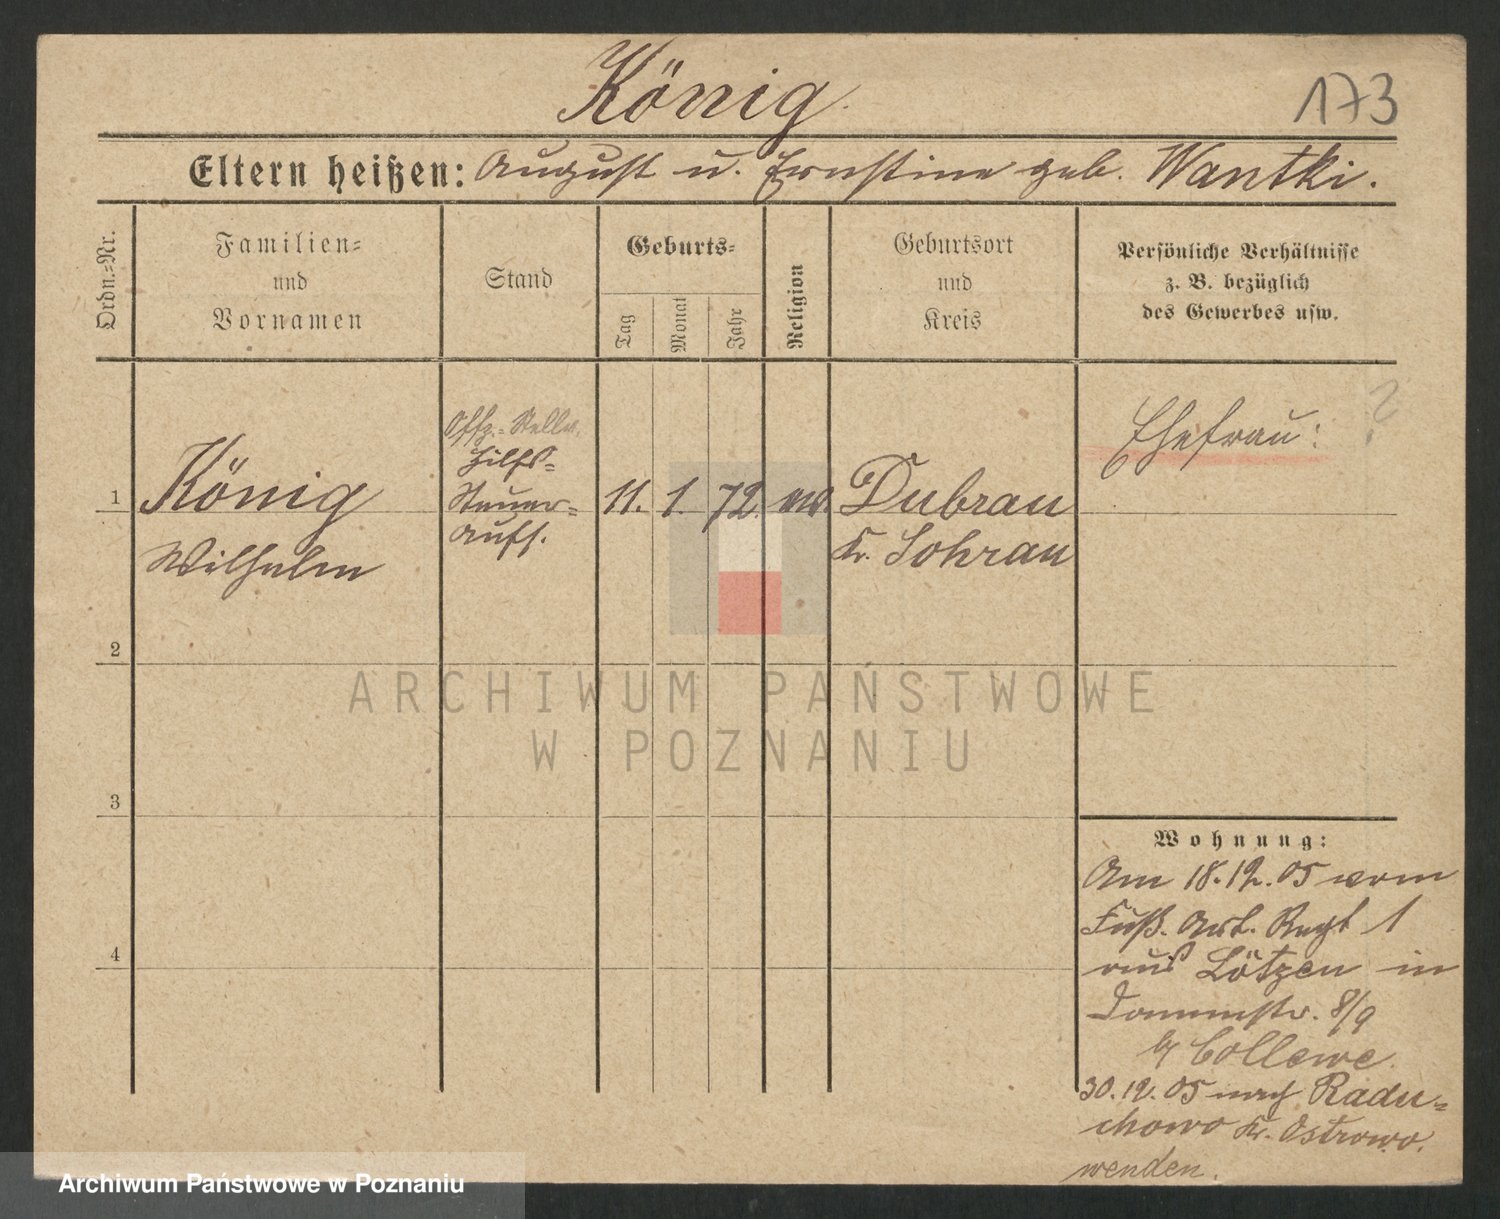 König.
173
Eltern heißen: August u. Ernstine geb. Wantki.
Ordn.-Nr.
Familien-
und
Vornamen
Stand
Geburts-
Tag
Monat
Jahr
Religion
Geburtsort
und
Kreis
Persönliche Verhältnisse
z. B. bezüglich
des Gewerbes usw.
1
König
Wilhelm
Offz.-Stellv.
Hilfs-
Steuer-
Aufs.
11. 1. 72. ev.
Dubrau
Kr. Sohrau
Ehefrau:
?
2
3
4
Wohnung:
Am 18.12.05 vom
Fuß. Art. Regt 1
aus Lötzen in
8/9
b/ Collewe.
30.12.05 nach Radu-
chowo Kr. Ostrowo.
wenden.
ARCHIWUM PAŃSTWOWE
W POZNANIU
Archiwum Państwowe w Poznaniu